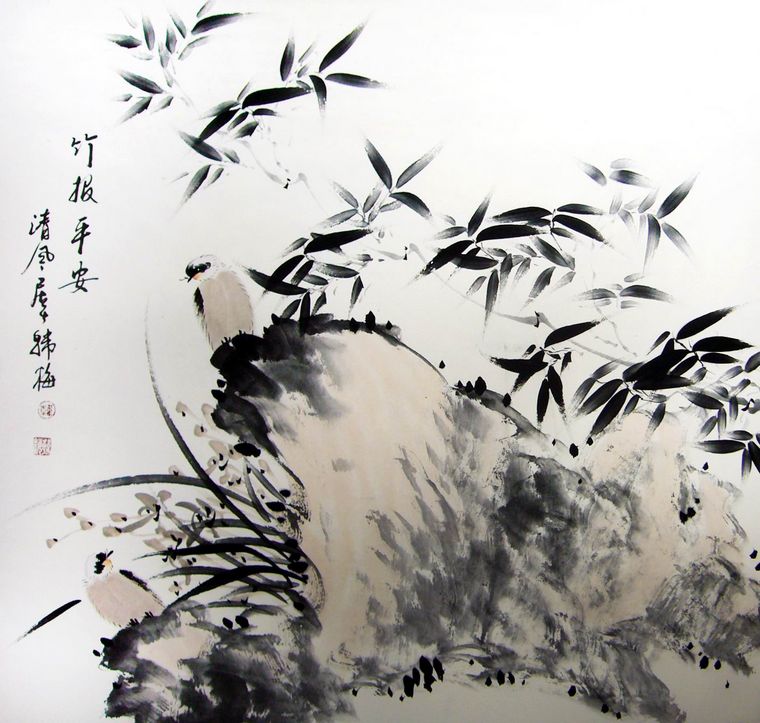 竹报平安
清风居士韩梅